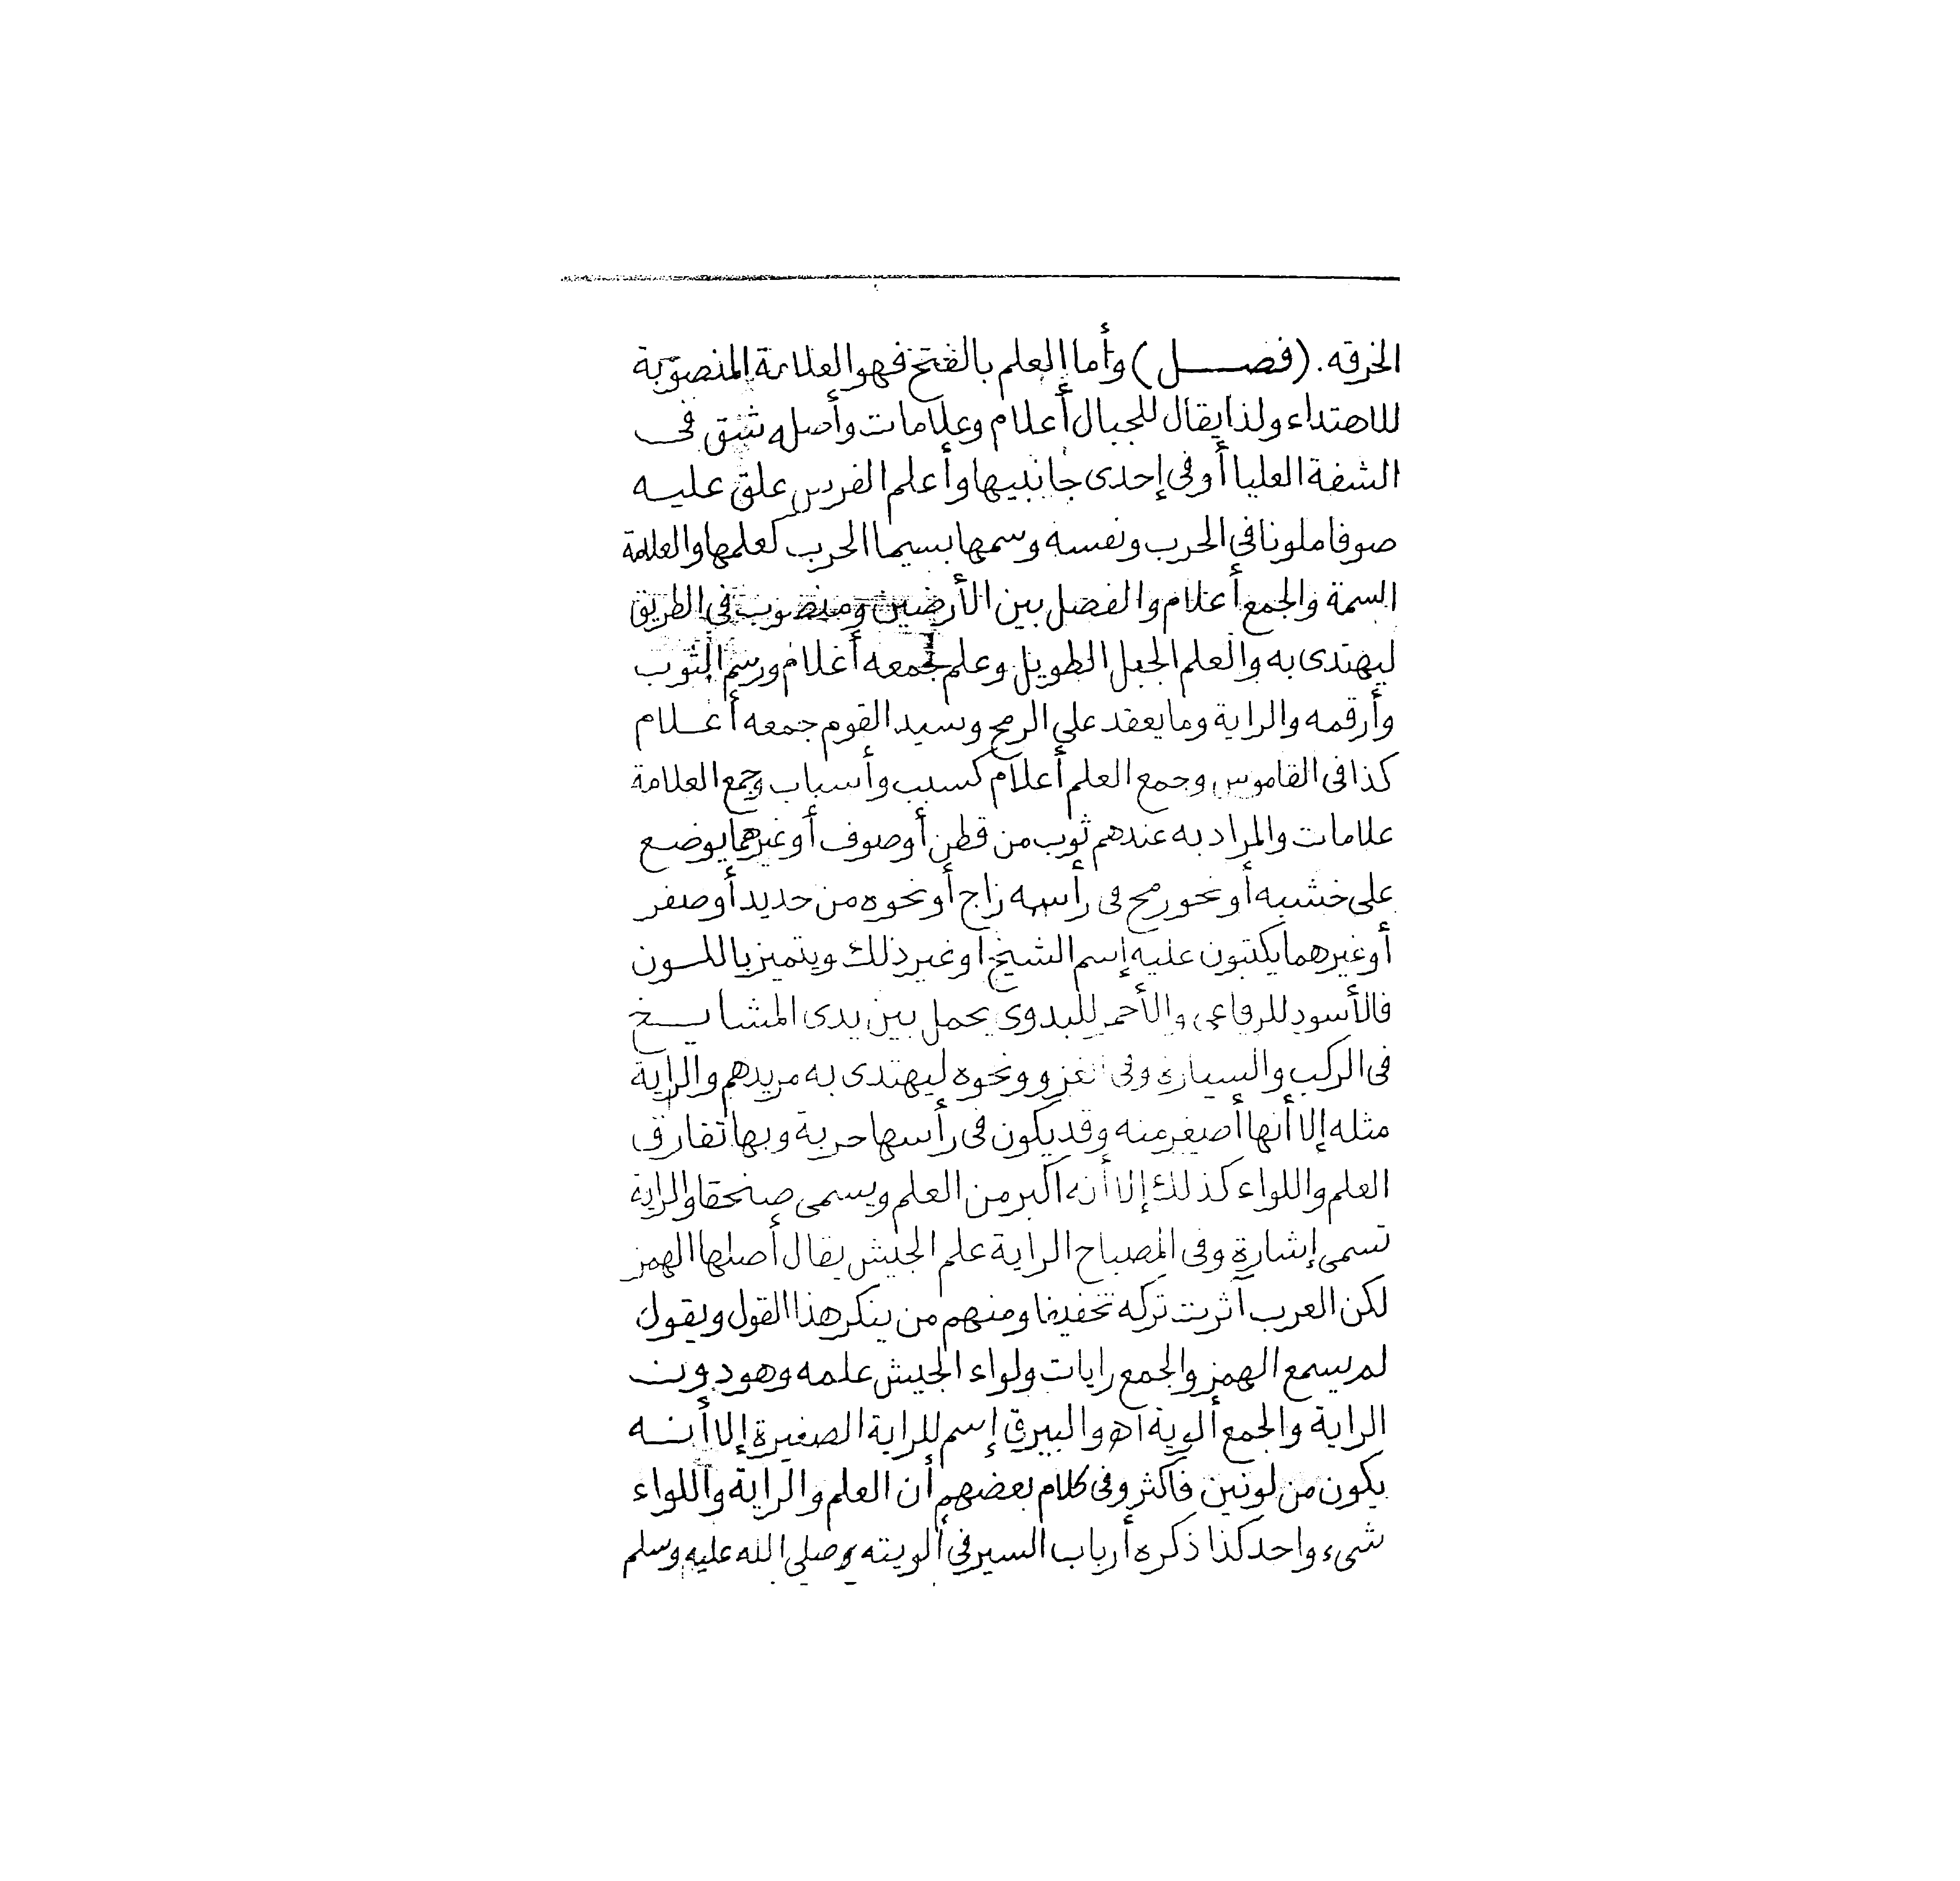 الخرقه. (فصـــل) وأما العلم بالفتح فهو العلامة المنصوبة
للاهتداء ولذا يقال للجبال أعلام وعلامات وأصله شق فى
الشفة العليا أو فى إحدى جانبيها وأعلم الفرس علق عليه
صوفا ملونا في الحرب ونفسه وسمها بسيما الحرب كعلمها والعلامة
السمة والجمع أعلام والفصل بين الأرضين ومنصوب في الطريق
ليهتدى به والعلم الجبل الطويل وعلم جمعه أعلام ورسم الثوب
وأرقمه والراية وما يعقد على الرمح وسيد القوم جمعه أعـلام
كذا فى القاموس وجمع العلم أعلام كسبب وأسباب وجمع العلامة
علامات والمراد به عندهم ثوب من قطن أو صوف أو غيرهما يوضع
على خشبه أو نحو رمح فى رأسه زاج أو نحوه من حديد أو صفر
أو غيرهما يكتبون عليه إسم الشيخ أو غير ذلك ويتميز باللـون
فالأسود للرفاعى والأحمر للبدوى يحمل بين يدى المشايـخ
فى الركب والسيارة وفى الغزو ونحوه ليهتدى به مريدهم والراية
مثله إلا أنها أصغر منه وقد يكون فى رأسها حربة وبها تفارق
العلم واللواء كذلك إلا أنه اكبر من العلم ويسمى صنحقا والراية
تسمى إشارة وفى المصباح الراية علم الجيش يقال أصلها الهمز
لكن العرب آثرت تركه تخفيفا ومنهم من ينكر هذا القول ويقول
لم يسمع الهمز والجمع رايات ولواء الجيش علمه وهو دون
الراية والجمع ألوية اهـ والبيرق إسم للراية الصغيرة إلا أنـه
يكون من لونين فأكثر وفى كلام بعضهم أن العلم والراية واللواء
شىء واحد كذا ذكره أرباب السير فى ألويته صلى الله عليه وسلم